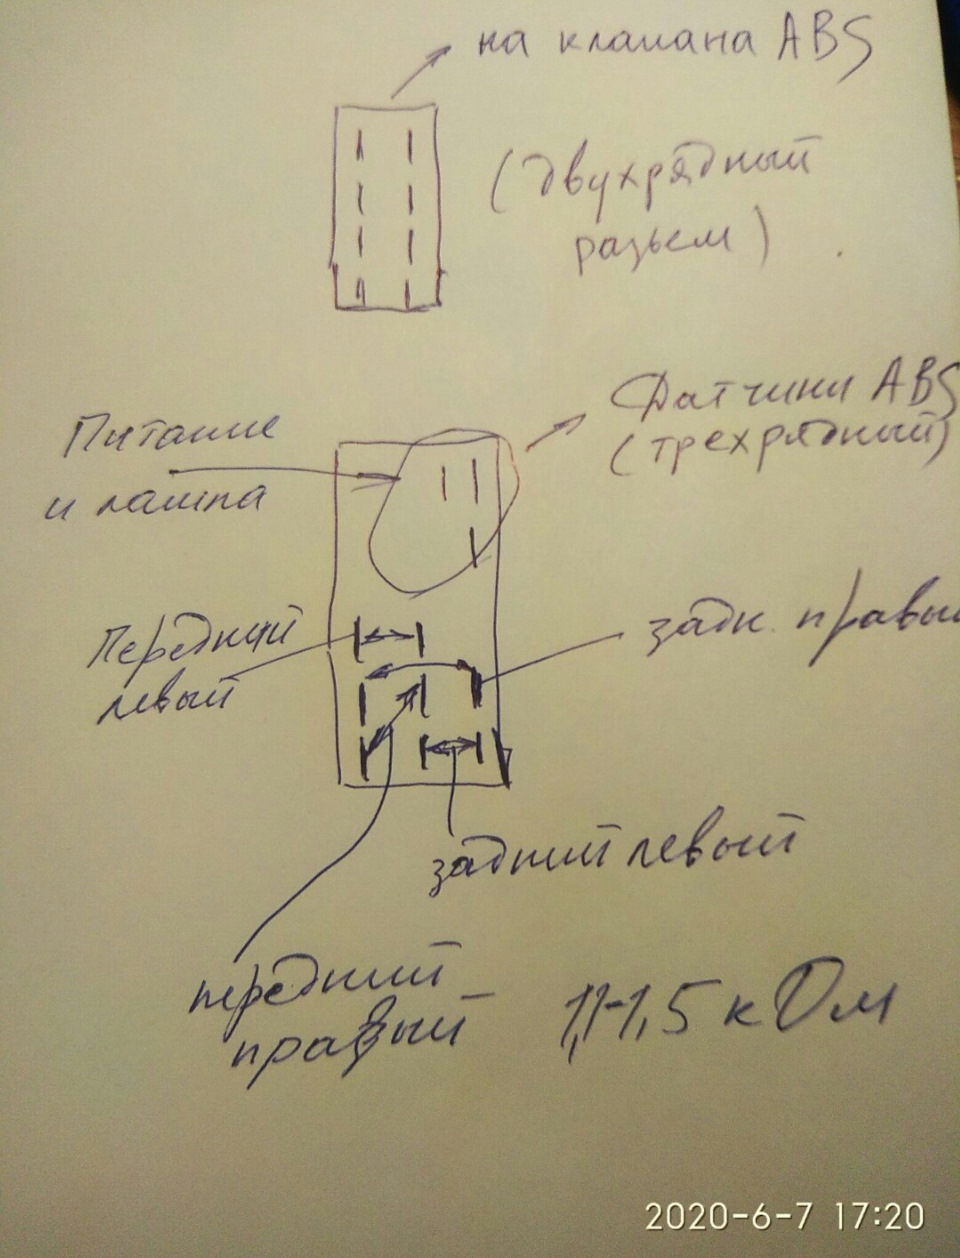 на клапана ABS
(двухрядный
разъем)
Датчики ABS
(трехрядный)
Питание
и лампа
Передний
левый
задн. правый
задний левый
передний
правый
1,1-1,5 кОм
2020-6-7 17:20